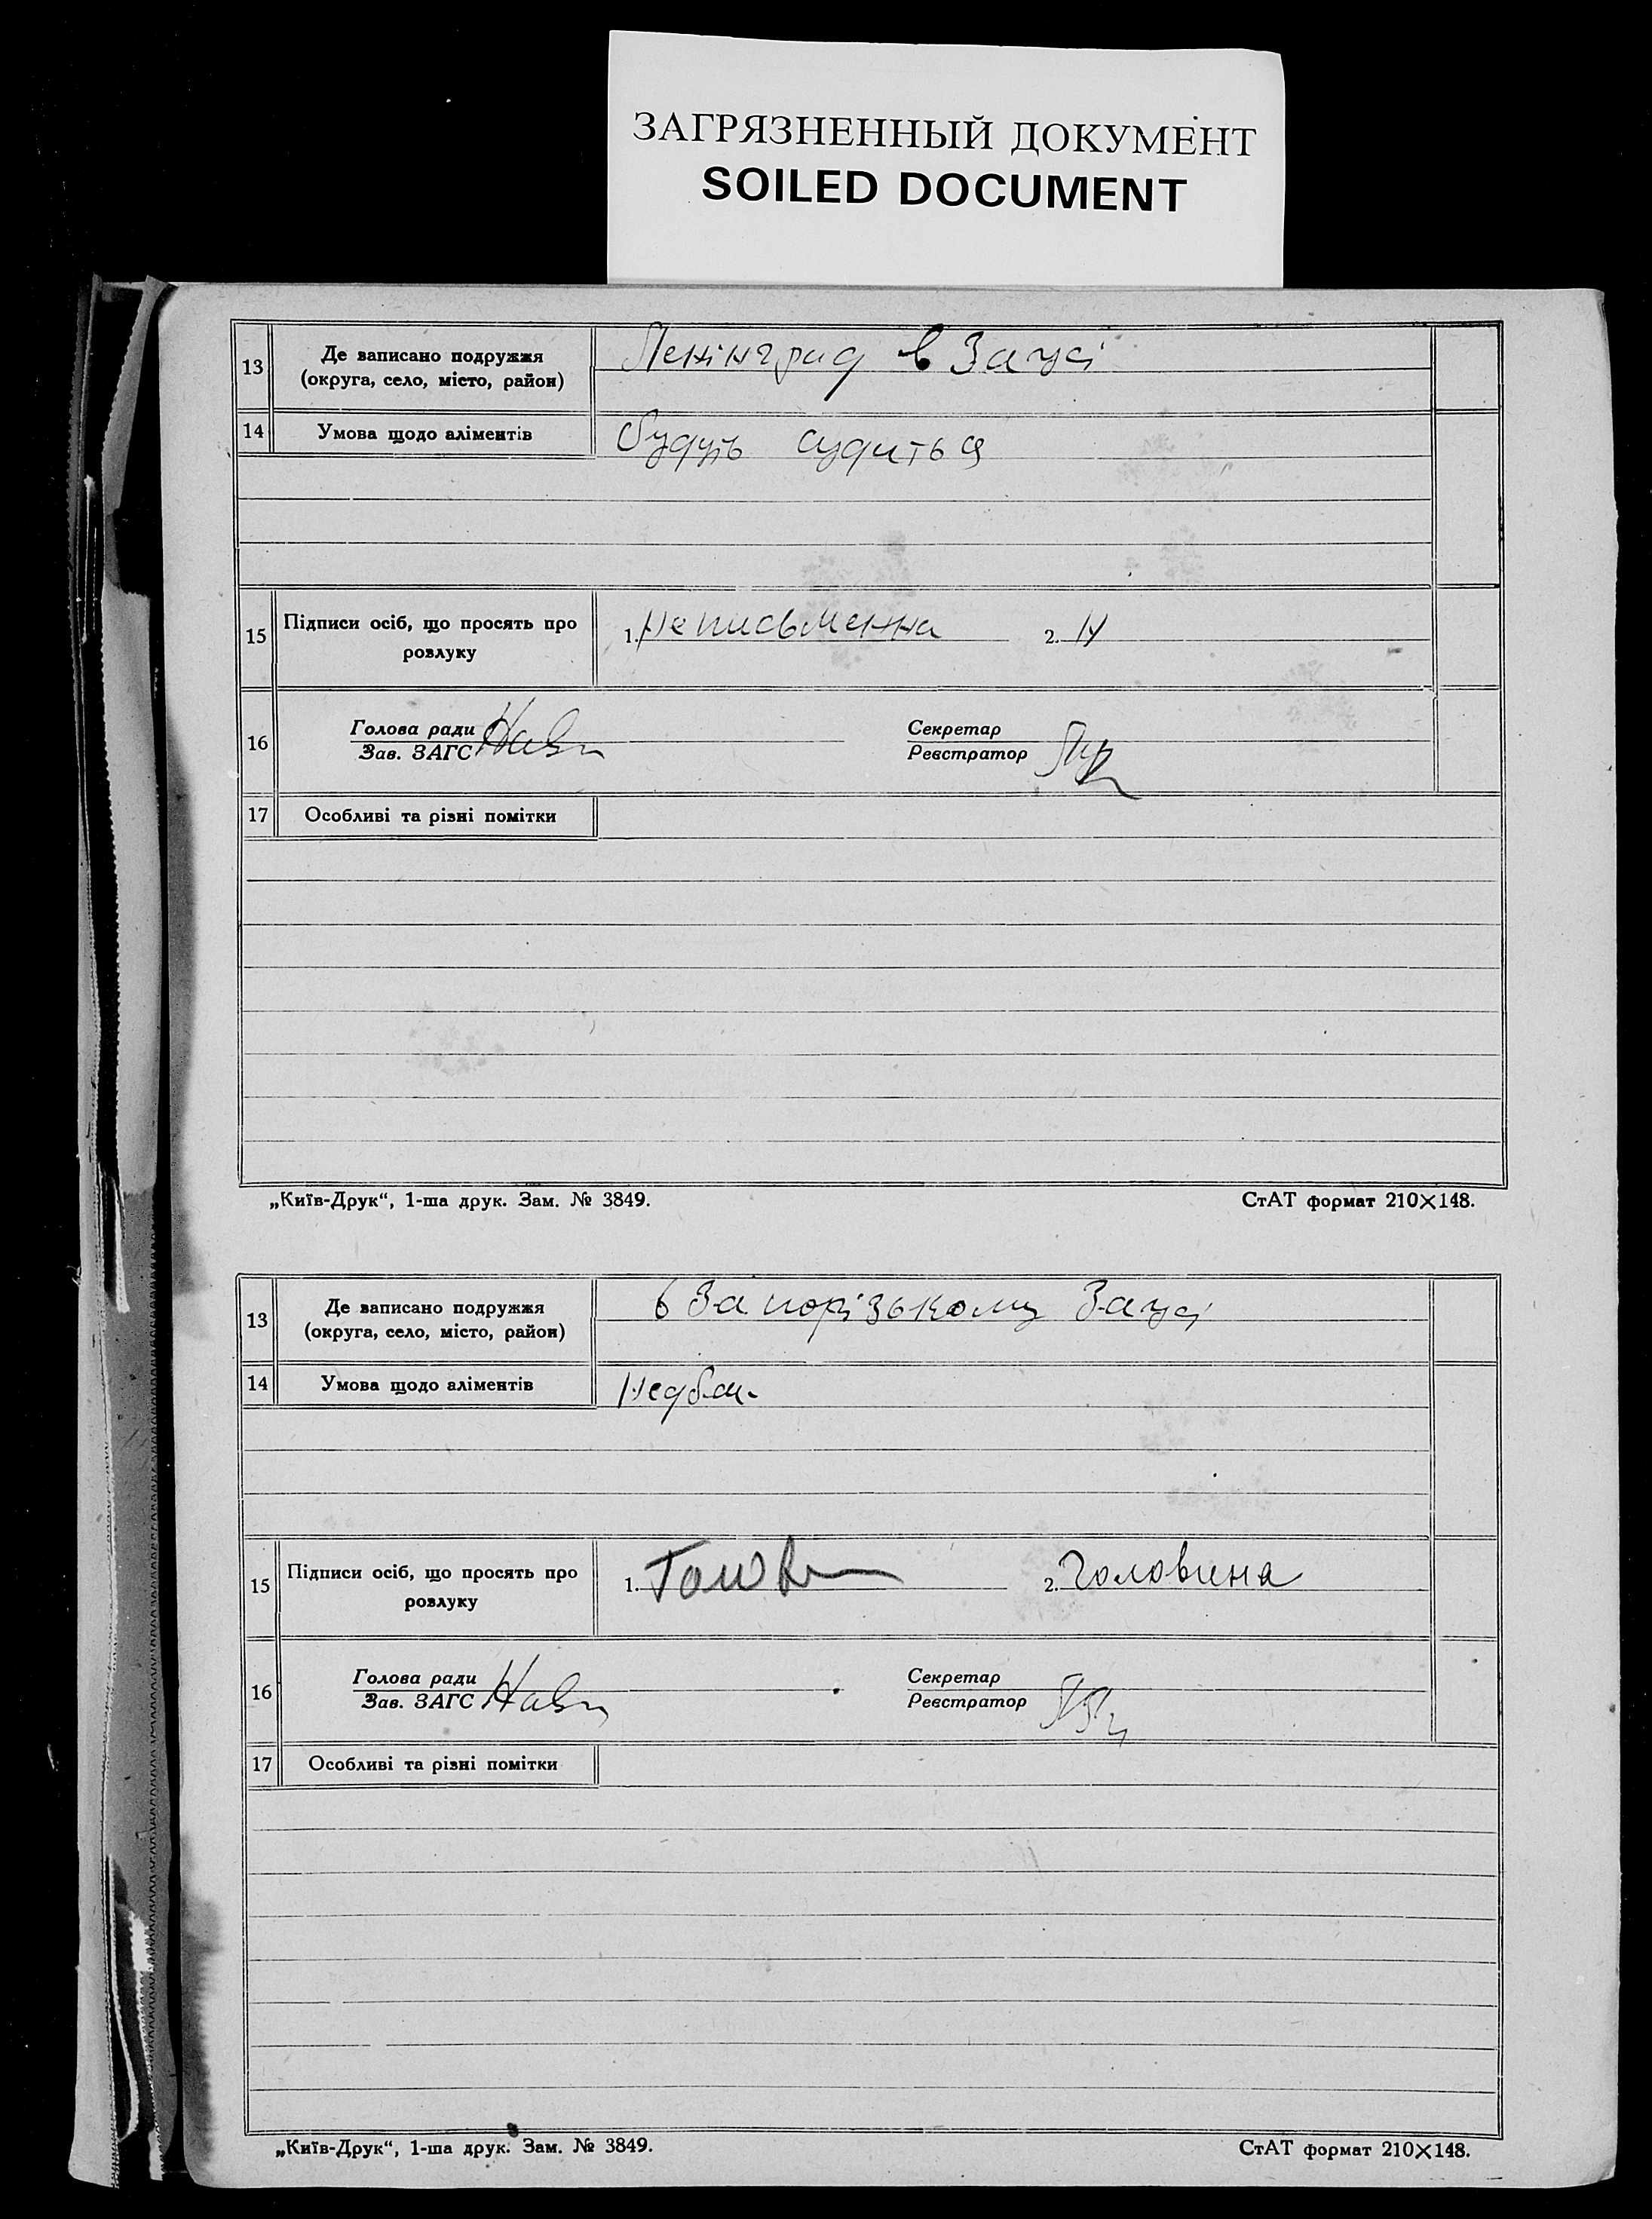 ЗАГРЯЗНЕННЫЙ ДОКУМЕНТ
SOILED DOCUMENT
13 Де записано подружжя
(округа, село, місто, район)
Ленінград в Загсі
14 Умова щодо аліментів
будуть судиться
15 Підписи осіб, що просять про
розлуку
1. Неписьменна 2. Н
16 Голова ради
Зав. ЗАГС
Секретар
Реєстратор
17 Особливі та різні помітки
„Київ-Друк“, 1-ша друк. Зам. № 3849. СтАТ формат 210×148.
13 Де записано подружжя
(округа, село, місто, район)
в Запорізькому Загсі
14 Умова щодо аліментів
15 Підписи осіб, що просять про
розлуку
1. 2. Головина
16 Голова ради
Зав. ЗАГС
Секретар
Реєстратор
17 Особливі та різні помітки
„Київ-Друк“, 1-ша друк. Зам. № 3849. СтАТ формат 210×148.